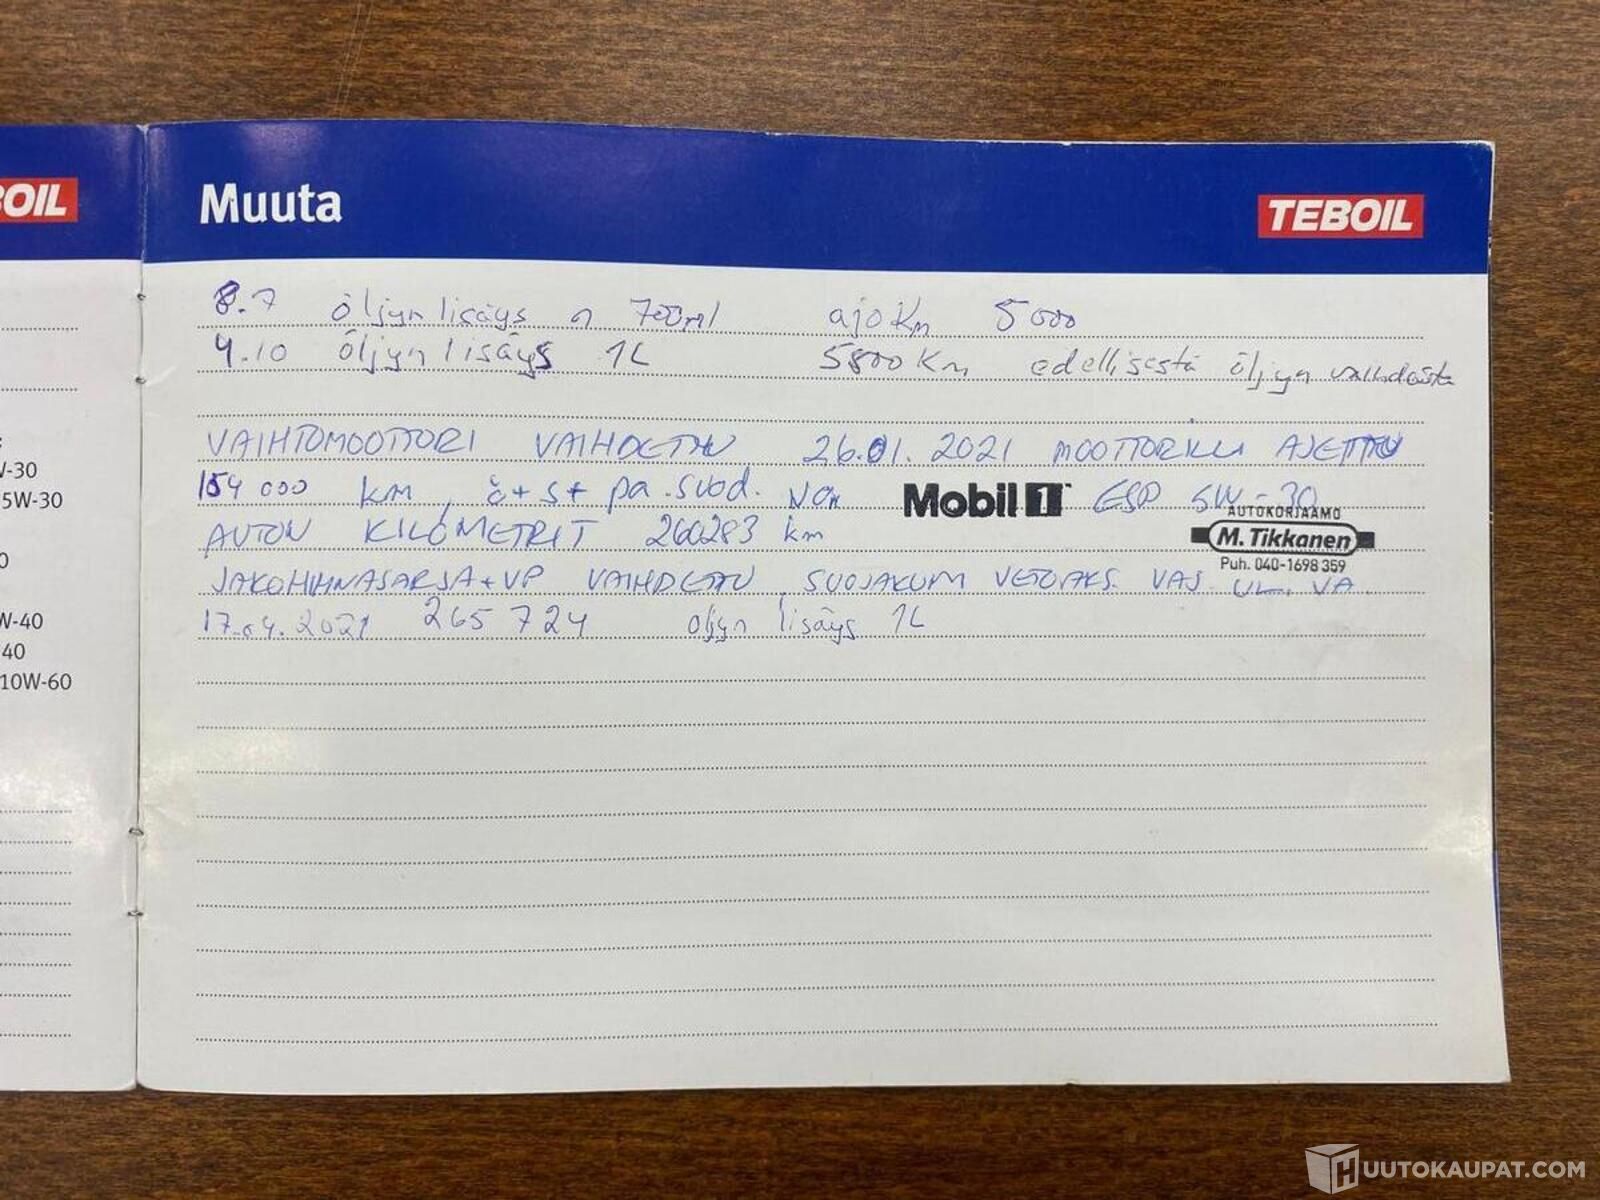 BOIL
Muuta
TEBOIL
8.7 öljyn lisäys n 700ml ajo Km 5000
4.10 öljyn lisäys 1L 5800 Km edellisestä öljyn vaihdosta
VAIHTOMOOTTORI VAIHDETTU 26.01.2021 MOOTTORILLA AJETTU
154 000 km, ö+s+ pa.suod. Mobil 1 ESP 5W-30
AUTOKORJAAMO
M. Tikkanen
Puh. 040-1698 359
AUTON KILOMETRIT 260283 km
JAKOHIHNASARJA+VP VAIHDETTU, SUOJAKUMI VETOAKS. VAS. UL. VA
17.04.2021 265 724 öljyn lisäys 1L
W-30
5W-30
0
W-40
40
10W-60
HUUTOKAUPAT.COM